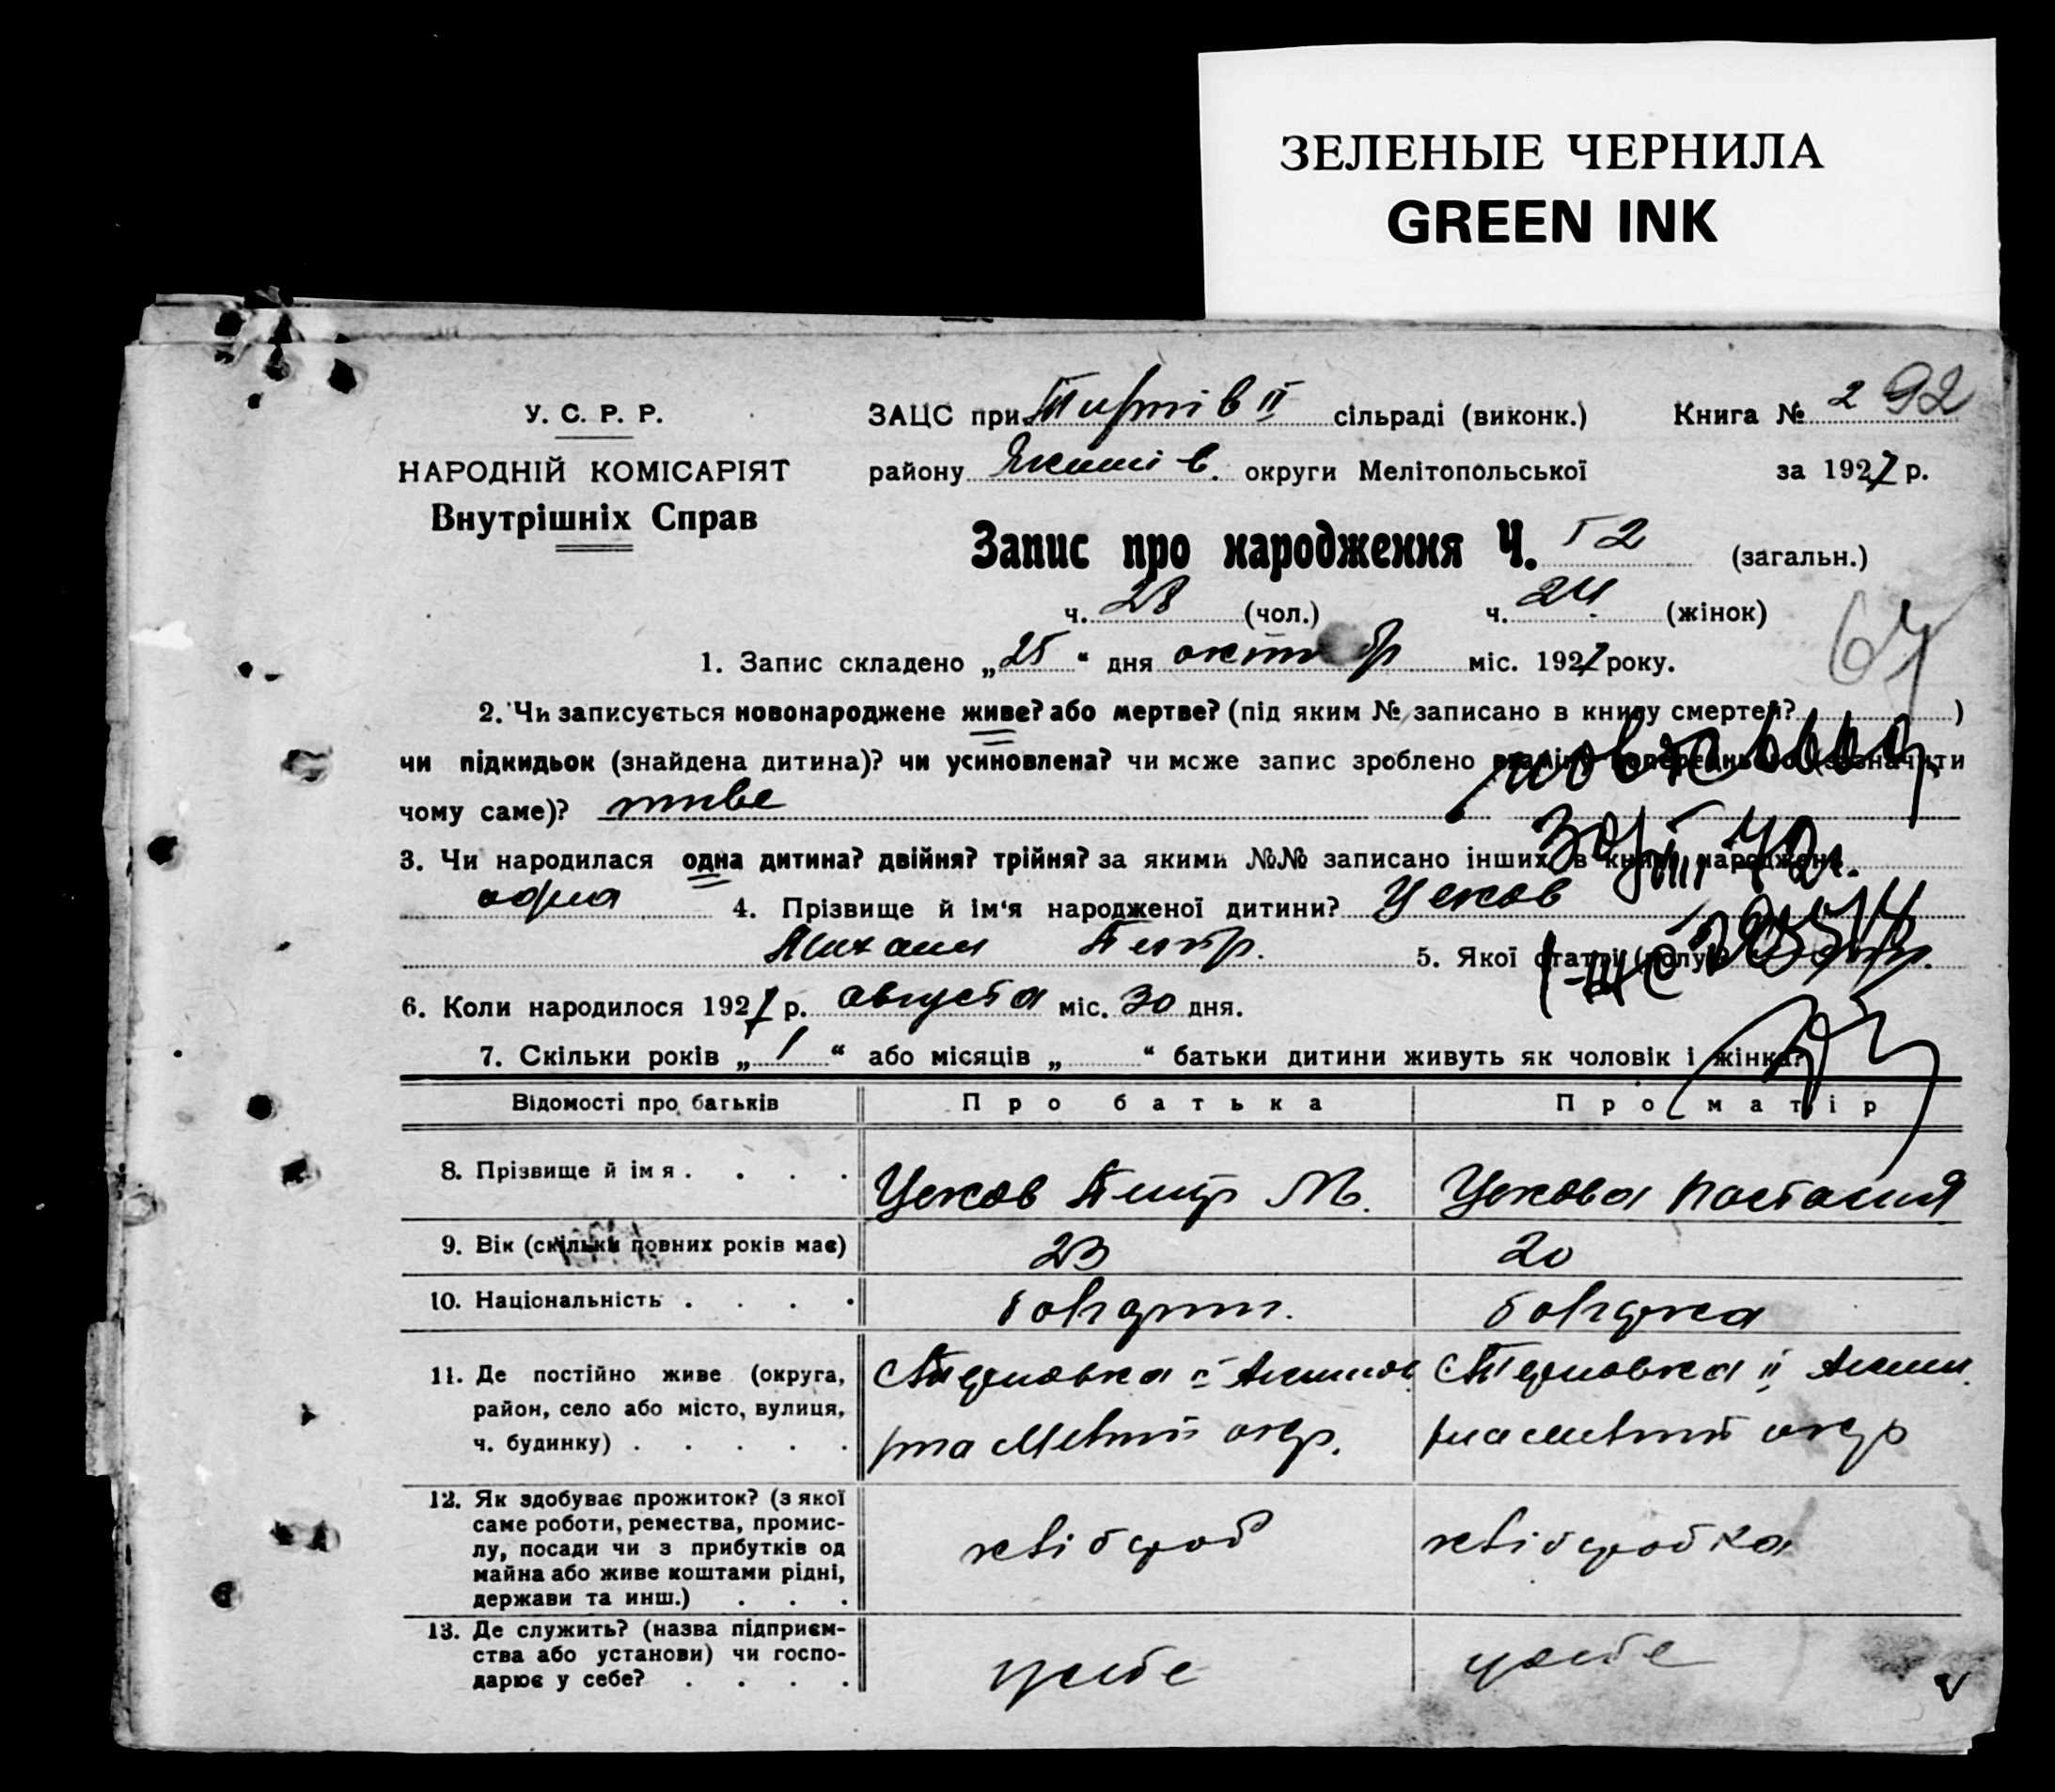 ЗЕЛЕНЫЕ ЧЕРНИЛА
GREEN INK
У. С. Р. Р.
НАРОДНІЙ КОМІСАРІЯТ
Внутрішніх Справ
ЗАЦС при II сільраді (виконк.) Книга № 2 92
району округи Мелітопольської за 1927 р.
Запис про народження Ч. 52 (загальн.)
ч. 28 (чол.) ч. 24 (жінок)
67
1. Запис складено „25“ дня міс. 1927 року.
2. Чи записується новонароджене живе? або мертве? (під яким № записано в книгу смертей? )
чи підкидьок (знайдена дитина)? чи усиновлена? чи може запис зроблено
чому саме)? живе
3. Чи народилася одна дитина? двійня? трійня? за якими №№ записано інших в книзі народжень
одна 4. Прізвище й ім‘я народженої дитини? Усков
Михаил Петр. 5. Якої статі (полу)
6. Коли народилося 1927 р. августа міс. 30 дня.
7. Скільки років „1“ або місяців „ “ батьки дитини живуть як чоловік і жінка?
Відомості про батьків Про батька Про матір
8. Прізвище й ім я . . . . Усков Петр М. Ускова Настасия
9. Вік (скільки повних років має) 23 20
10. Національність . . . . болгарин. болгарка
11. Де постійно живе (округа,
район, село або місто, вулиця,
ч. будинку) . . . . .
12. Як здобуває прожиток? (з якої
саме роботи, ремества, промис-
лу, посади чи з прибутків од
майна або живе коштами рідні,
держави та инш.) . . .
хлібороб хліборобка
13. Де служить? (назва підприєм-
ства або установи) чи госпо-
дарює у себе? . . . .
у себе у себе